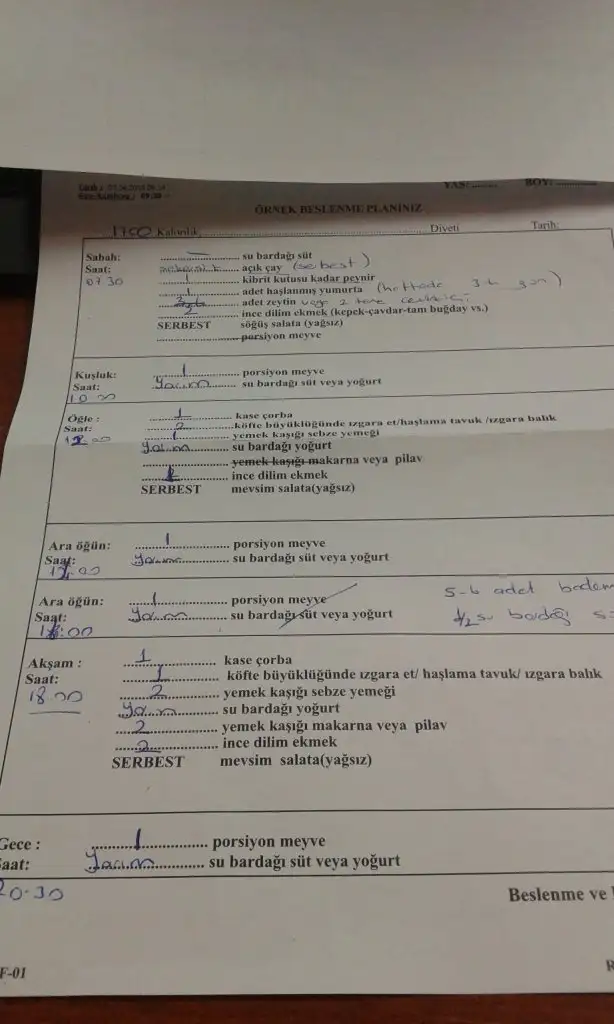 YAŞ: ........ BOY: ............
ÖRNEK BESLENME PLANINIZ
1700 Kalorilik Diyeti Tarih:
Sabah: ........ su bardağı süt
Saat: ........ açık çay (serbest)
07 30 1 kibrit kutusu kadar peynir
1 adet haşlanmış yumurta (haftada 3-4 gün)
adet zeytin veya 2 tane ceviz içi
2 ince dilim ekmek (kepek-çavdar-tam buğday vs.)
SERBEST söğüş salata (yağsız)
........ porsiyon meyve
Kuşluk: 1 porsiyon meyve
Saat: Yarım su bardağı süt veya yoğurt
10 00
Öğle : 1 kase çorba
Saat: 2 köfte büyüklüğünde ızgara et/haşlama tavuk /ızgara balık
12 00 yemek kaşığı sebze yemeği
Yarım su bardağı yoğurt
........ yemek kaşığı makarna veya pilav
ince dilim ekmek
SERBEST mevsim salata(yağsız)
Ara öğün: 1 porsiyon meyve
Saat: Yarım su bardağı süt veya yoğurt
Ara öğün: 1 porsiyon meyve 5-6 adet badem
Saat: Yarım su bardağı süt veya yoğurt 1/2 su bardağı
Akşam : 1 kase çorba
Saat: 1 köfte büyüklüğünde ızgara et/ haşlama tavuk/ ızgara balık
18 00 2 yemek kaşığı sebze yemeği
Yarım su bardağı yoğurt
2 yemek kaşığı makarna veya pilav
2 ince dilim ekmek
SERBEST mevsim salata(yağsız)
Gece : 1 porsiyon meyve
Saat: Yarım su bardağı süt veya yoğurt
20.30
Beslenme ve
F-01